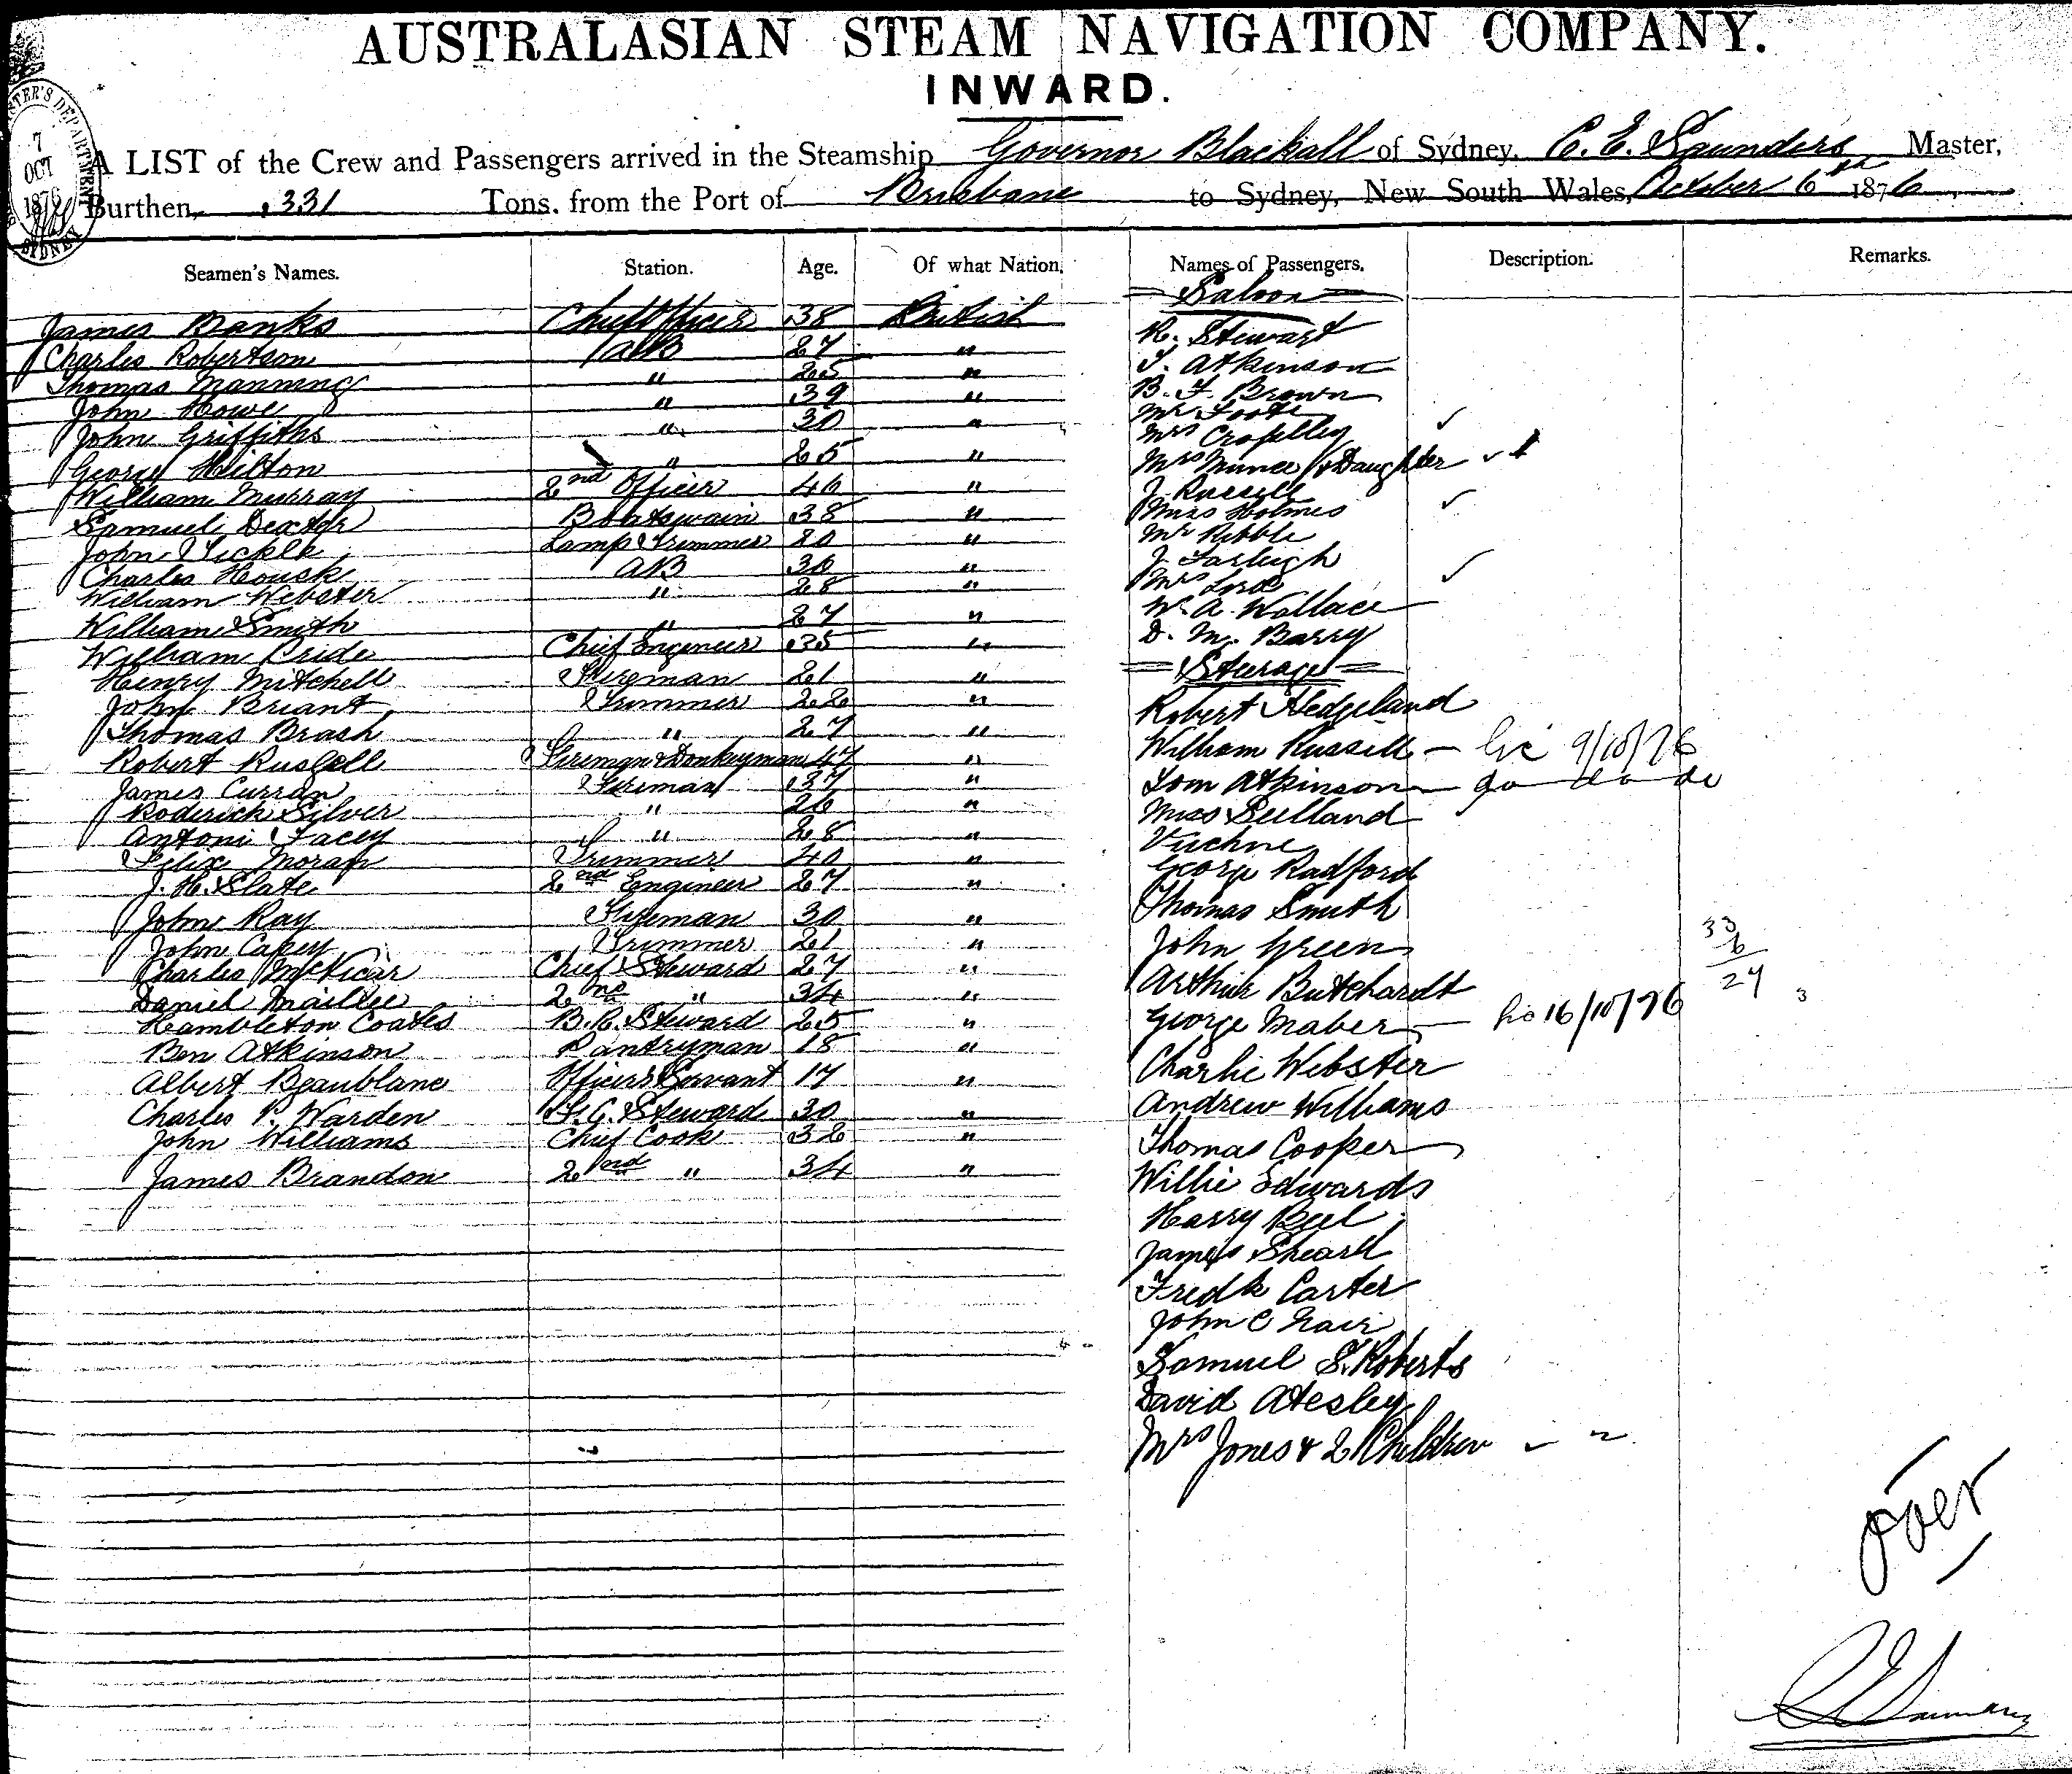 AUSTRALASIAN STEAM NAVIGATION COMPANY.
INWARD.
A LIST of the Crew and Passengers arrived in the Steamship Governor Blackall of Sydney, C. E. Saunders Master,
Burthen, 331 Tons, from the Port of Brisbane to Sydney, New South Wales, October 6th 1876
7
OCT
1876
SYDNEY
Seamen's Names. Station. Age. Of what Nation.
James Banks Chief Officer 38 British
Charles Robertson AB 27 "
Thomas Manning " 25 "
John Howe " 39 "
John Griffiths " 30 "
George Hilton " 25 "
William Murray 2nd Officer 46 "
Samuel Dexter Boatswain 38 "
John Lamp Trimmer 20 "
Charles Houck AB 30 "
William Webster " 28 "
William Smith " 27 "
William Pride Chief Engineer 35 "
Henry Mitchell Fireman 21 "
John Briant Trimmer 22 "
Thomas Brash " 27 "
Robert Russell Fireman & Donkeyman 47 "
James Curran Fireman 37 "
Roderick Silver " 26 "
Antoni Facey " 28 "
Felix Moran Trimmer 40 "
J. H. Slate 2nd Engineer 27 "
John Ray Fireman 30 "
John Capey Trimmer 21 "
Charles McVicar Chief Steward 27 "
Daniel 2nd " 34 "
Hambleton Coates B.R. Steward 25 "
Ben Atkinson Pantryman 18 "
Albert Beaublanc Officers Servant 17 "
Charles P. Warden F.C. Steward 30 "
John Williams Chief Cook 32 "
James Brandon 2nd " 34 "
Names of Passengers. Description. Remarks.
Saloon
R. Stewart
T. Atkinson
B. F. Brown
Mr Foote
Mrs Cropelley ✓
Mrs Munce & Daughter ✓
J. Russell
Miss Holmes ✓
Mr Ribble
J. Farleigh
Mrs Lord ✓
W. A. Wallace
D. M. Barry
Steerage
Robert Hedgeland
William Russell 9/10/76
Tom Atkinson do do do
Miss
George Radford
Thomas Smith
John Green
Arthur Butchardt
George Maber 16/10/76
Charlie Webster
Andrew Williams
Thomas Cooper
Willie Edwards
Harry Beel
James Sheard
Fredk Carter
John C Nair
Samuel S. Roberts
David Atesley
Mrs Jones & 2 Children
33
6
27
3
over